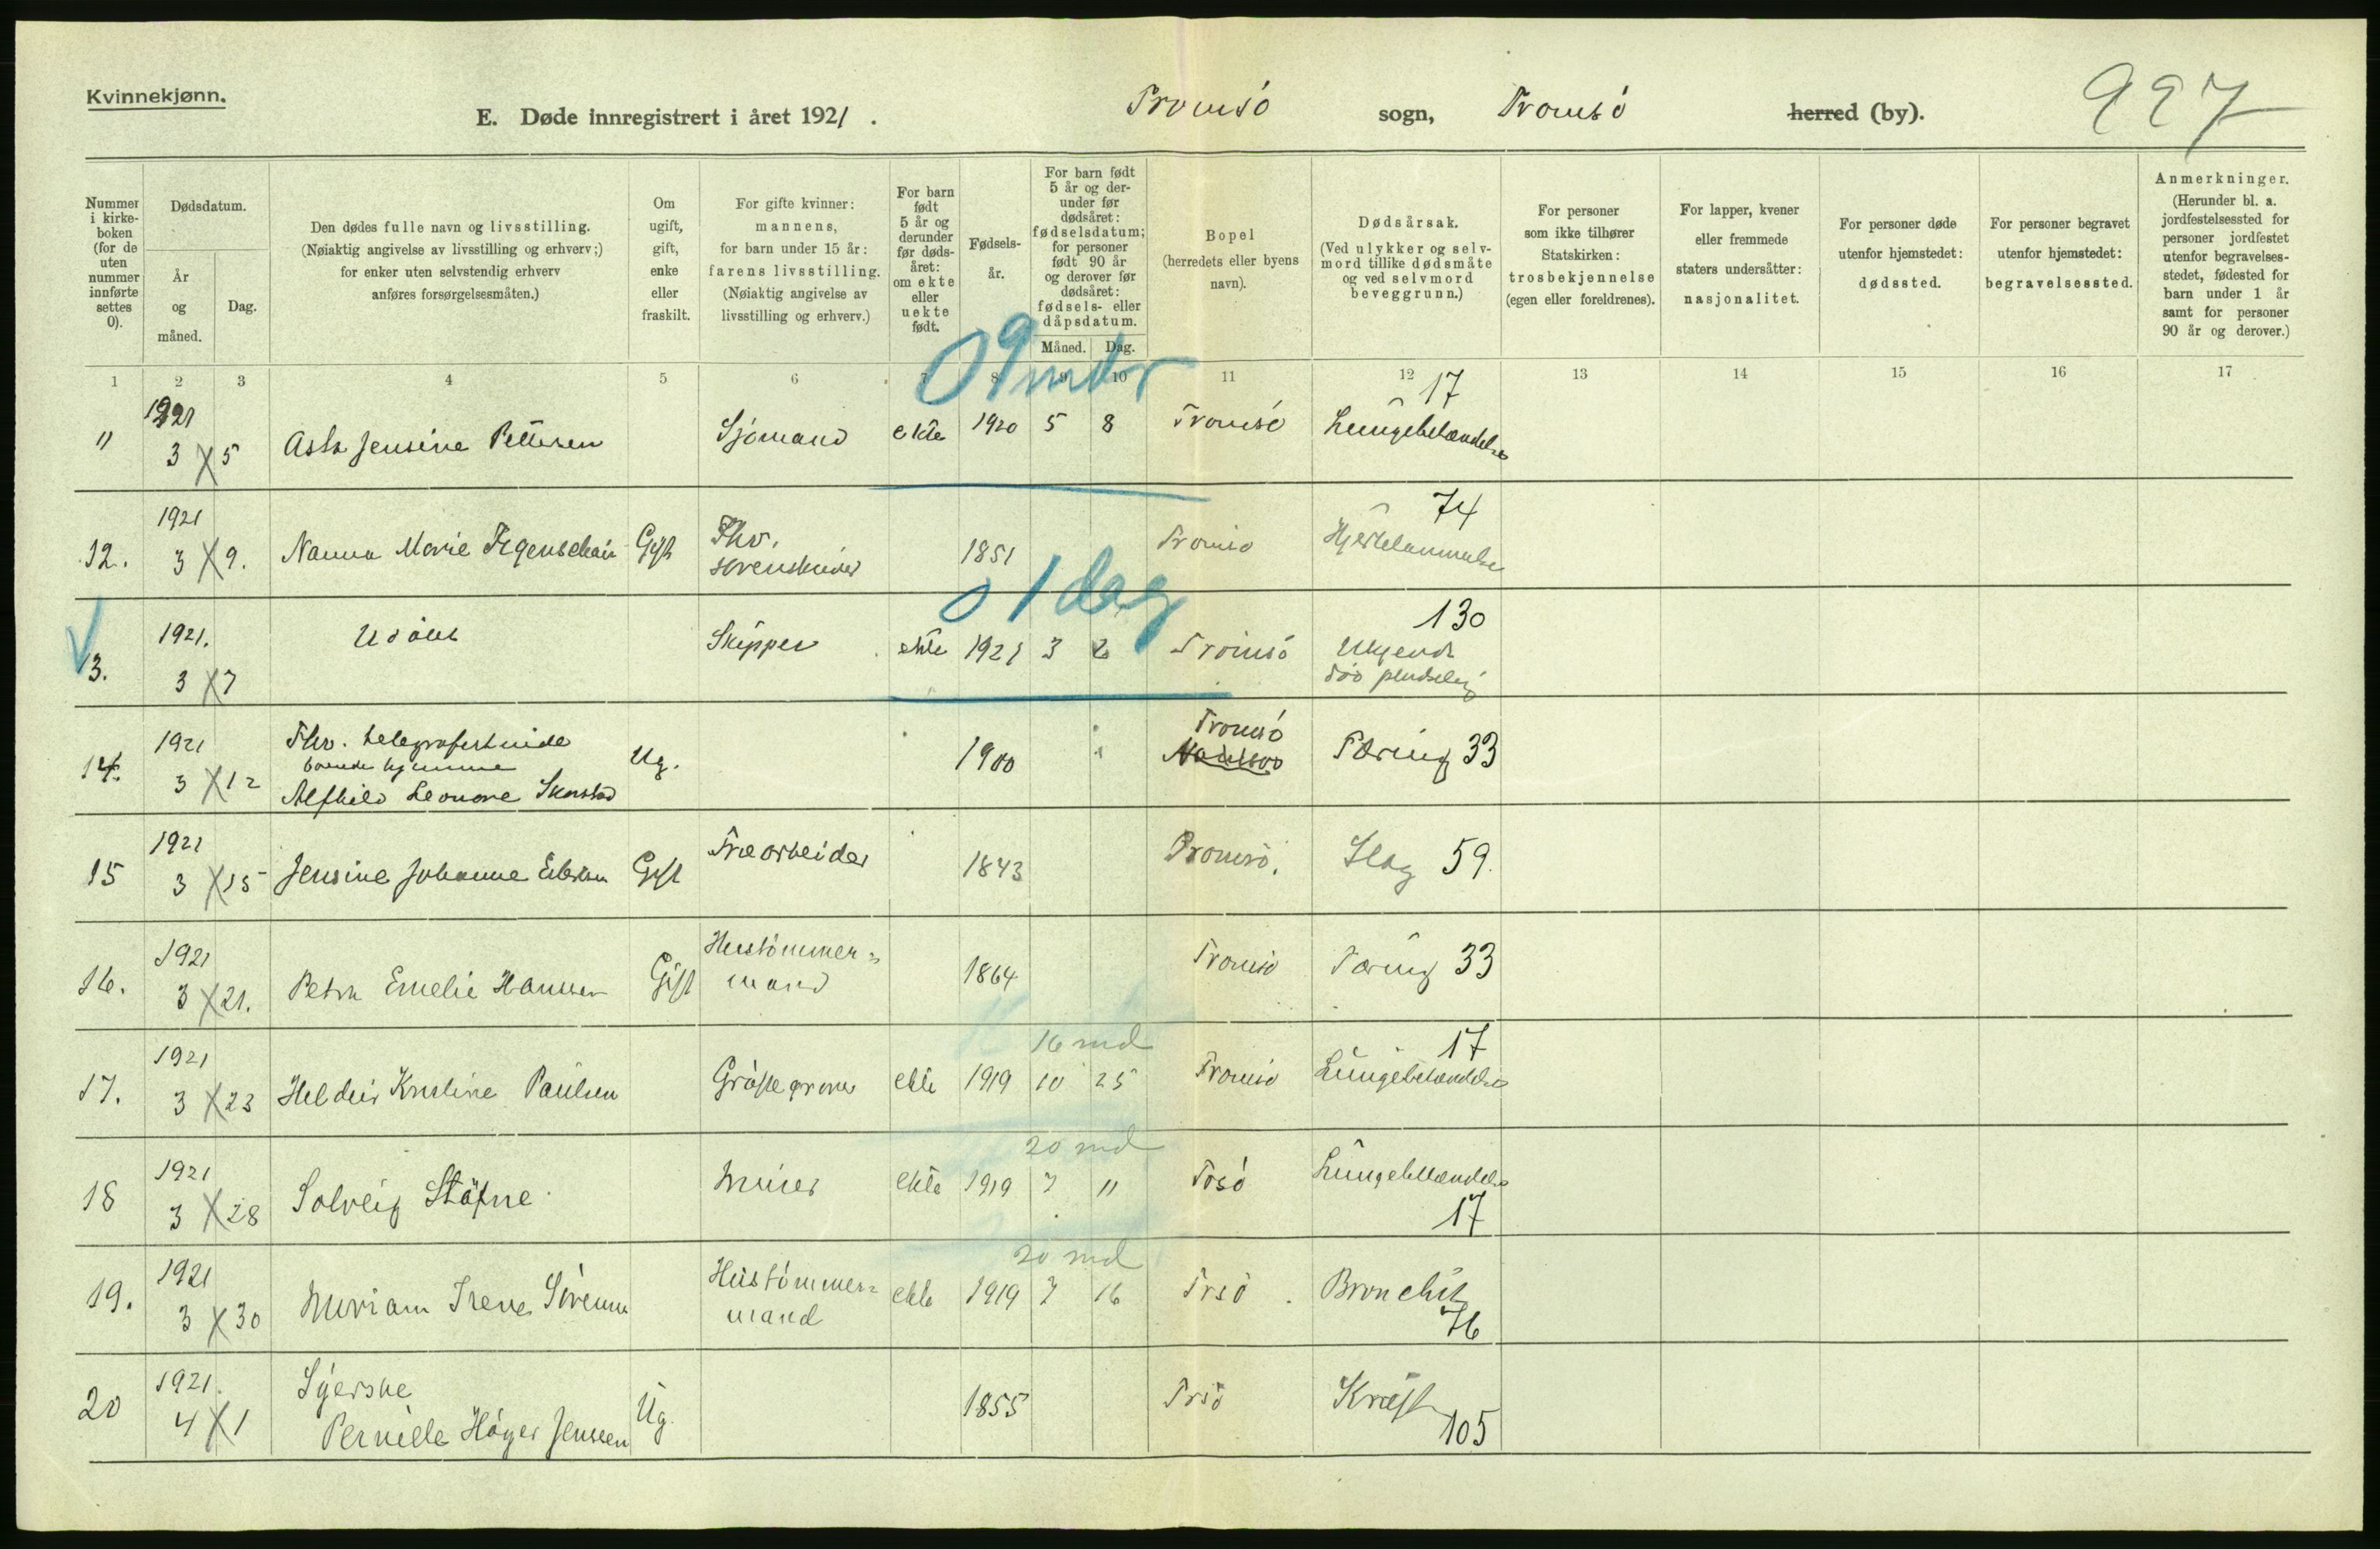 Kvinnekjønn.
E. Døde innregistrert i året 1921.
Tromsö sogn, Tromsö herred (by).
997
Nummer i kirke-boken (for de uten nummer innførte settes 0).
Dødsdatum.
År og måned.
Dag.
Den dødes fulle navn og livsstilling.
(Nøiaktig angivelse av livsstilling og erhverv;)
for enker uten selvstendig erhverv
anføres forsørgelsesmåten.)
Om ugift, gift, enke eller fraskilt.
For gifte kvinner:
mannens,
for barn under 15 år:
farens livsstilling.
(Nøiaktig angivelse av
livsstilling og erhverv.)
For barn født 5 år og derunder før døds-året: om ekte eller uekte født.
Fødsels-år.
For barn født 5 år og der-under før dødsåret: fødselsdatum; for personer født 90 år og derover før dødsåret: fødsels- eller dåpsdatum.
Måned. Dag.
Bopel
(herredets eller byens
navn).
Dødsårsak.
(Ved ulykker og selv-
mord tillike dødsmåte
og ved selvmord
beveggrunn.)
For personer
som ikke tilhører
Statskirken:
trosbekjennelse
(egen eller foreldrenes).
For lapper, kvener
eller fremmede
staters undersåtter:
nasjonalitet.
For personer døde
utenfor hjemstedet:
dødssted.
For personer begravet
utenfor hjemstedet:
begravelsessted.
Anmerkninger.
(Herunder bl. a.
jordfestelsessted for
personer jordfestet
utenfor begravelses-
stedet, fødested for
barn under 1 år
samt for personer
90 år og derover.)
1 2 3 4 5 6 7 8 9 10 11 12 13 14 15 16 17
0 9 mdr
17
11 1921 3 5 Asta Jensine Pettersen Sjömand ekte 1920 5 8 Tromsö Lungebetændelse
74
12. 1921 3 9. Nanna Marie Gift Fhv. 1851 Tromsö
0 1 dag
130
13. 1921. 3 7 Udöbt Skipper ekte 1921 3 Tromsö Ukjendt
död pludselig
14. 1921 3 12 Fhv. telegrafist
hjemme
Alfhild Leonore Ug. 1900 Tromsö Tæring 33
15 1921 3 15 Jensine Johanne Gift Træarbeider 1843 Tromsö. Slag 59.
16. 1921 3 21. Petra Emelie Hansen Gift Hustömmer=
mand 1864 Tromsö Tæring 33
16 md
17
17. 1921 3 23 Kristine Paulsen ekte 1919 10 25 Tromsö Lungebetændelse
20 md
18 1921 3 28 Solveig Murer ekte 1919 7 11 Tosö Lungebetændelse
17
20 md
19. 1921 3 30 Mirriam Irene Hustömmer=
mand ekte 1919 7 16 Trsö. Bronchit
76
20 1921. 4 1 Syerske
Pernille Höyer Jenssen Ug. 1855 Trsö Kræft
105